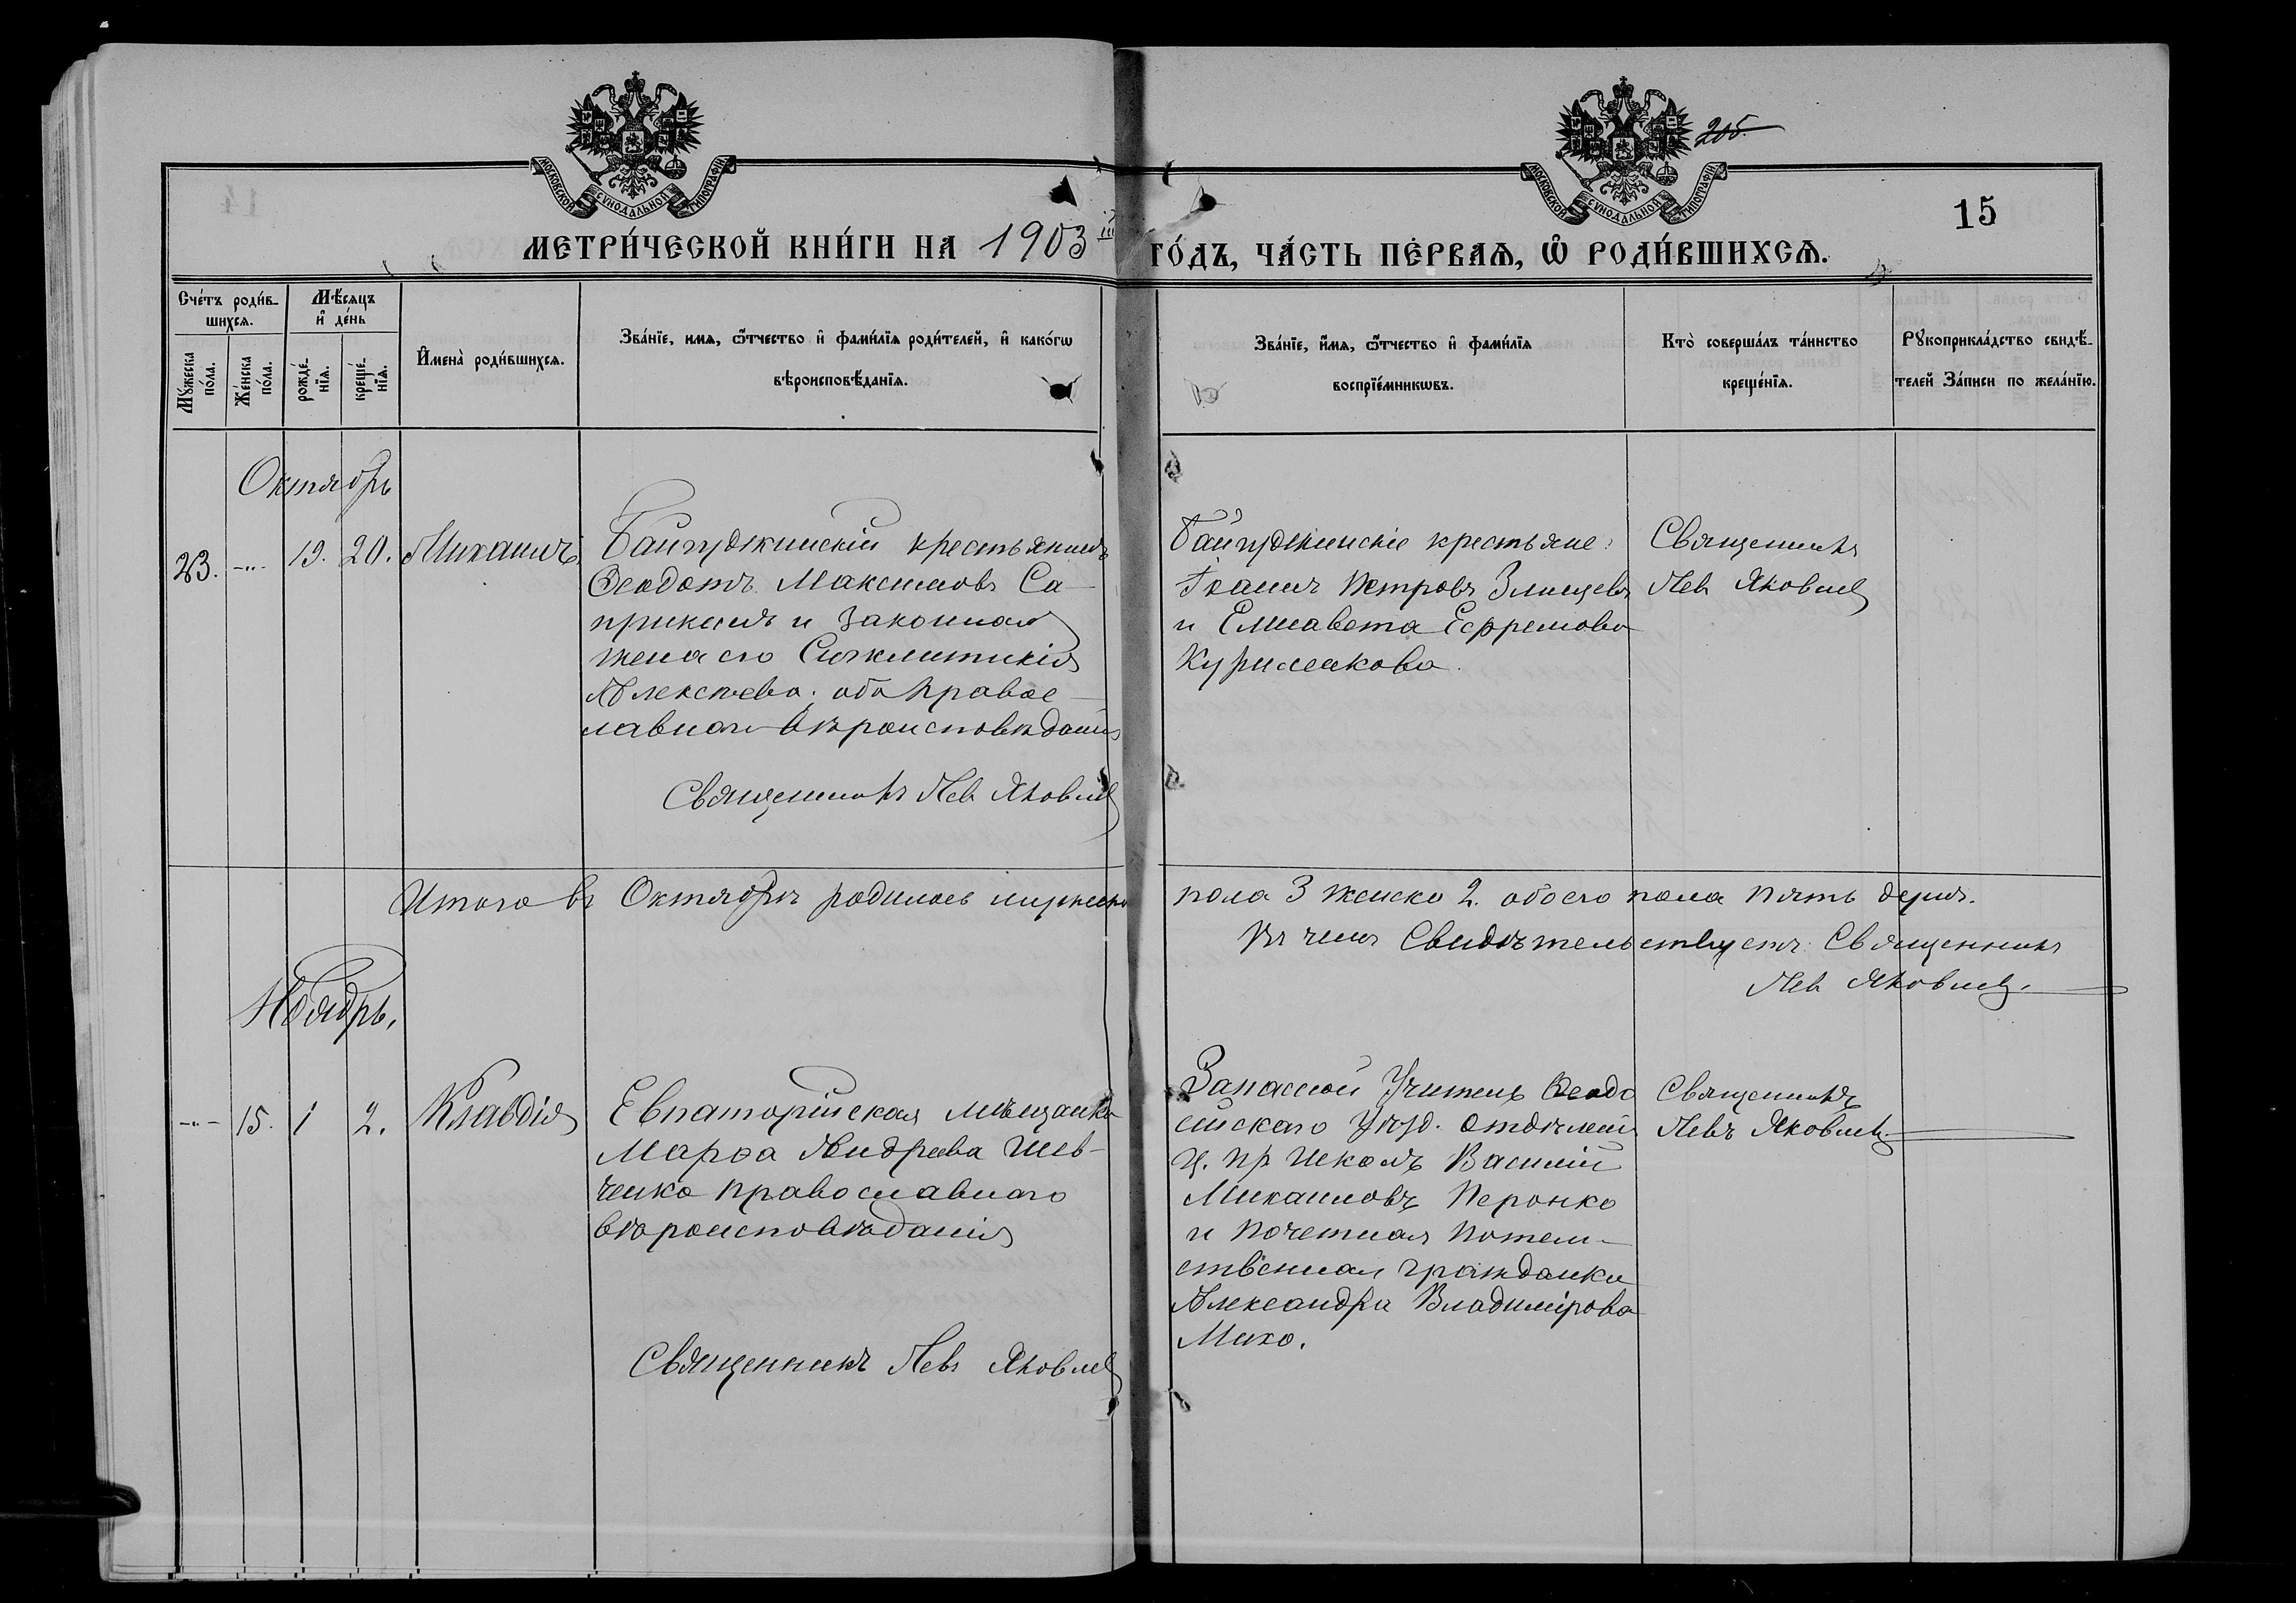 205.
15
МОСКОВСКОЙ СѴНОДАЛЬНОЙ ТИПОГРАФІИ.
МОСКОВСКОЙ СѴНОДАЛЬНОЙ ТИПОГРАФІИ.
МЕТРИ́ЧЕСКОЙ КНИ́ГИ НА 1903 ГО́ДЪ, ЧА́СТЬ ПЕ́РВАѦ, Ѽ РОДИ́ВШИХСѦ.
Сче́тъ роди́в-
шихсѧ.
Мѣ́сѧцъ
и҆ де́нь
Мꙋ́жеска
пола.
Же́нска
по́ла.
рожде́-
нїѧ.
креще́-
нїѧ.
И҆мена̀ роди́вшихсѧ.
Зва́нїе, имѧ, ѿтчество и҆ фами́лїѧ роди́телей, и҆ како́гѡ
вѣроисповѣ́данїѧ.
Зва́нїе, и҆́мѧ, ѿтчество и҆ фами́лїѧ
воспрїе́мникѡвъ.
Кто̀ соверша́лъ та́инство
креще́нїѧ.
Рꙋкоприкла́дство свидѣ́-
телей За́писи по жела́нїю.
Октябрь
23. -„- 19. 20. Михаилъ
Байгуджинскій крестьянинъ
Ѳеодотъ Максимовъ Са-
прикинъ и законная
жена его Синклитикія
Алексѣева, оба правос-
лавнаго вѣроисповѣданія
Священникъ Левъ Яковлев
Байгуджинскіе крестьяне:
Іоаннъ Петровъ
и Елисавета Ефремова
Священникъ
Левъ Яковлев
Итого въ Октябрѣ родилось мужеска пола 3 женска 2. обоего пола пять душъ.
Въ чемъ свидѣтельствуетъ: Священникъ
Левъ Яковлев.
Ноябрь.
-„- 15. 1 2. Клавдія
Евпаторійская мѣщанка
Марѳа Андреева Шев-
ченко православнаго
вѣроисповѣданія
Священникъ Левъ Яковлев
Запасной Учитель Ѳеодо
сійскаго Уѣзд. Отдѣленія
Ц. пр школъ Василій
Михаиловъ Перонко
и почетная потом-
ственная гражданка
Александра Владимірова
Михо.
Священникъ
Левъ Яковлев